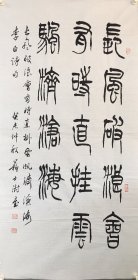 長風破浪會
有時直挂雲
颿濟滄海
長風破浪會有時直掛雲帆濟滄海
李白詩句